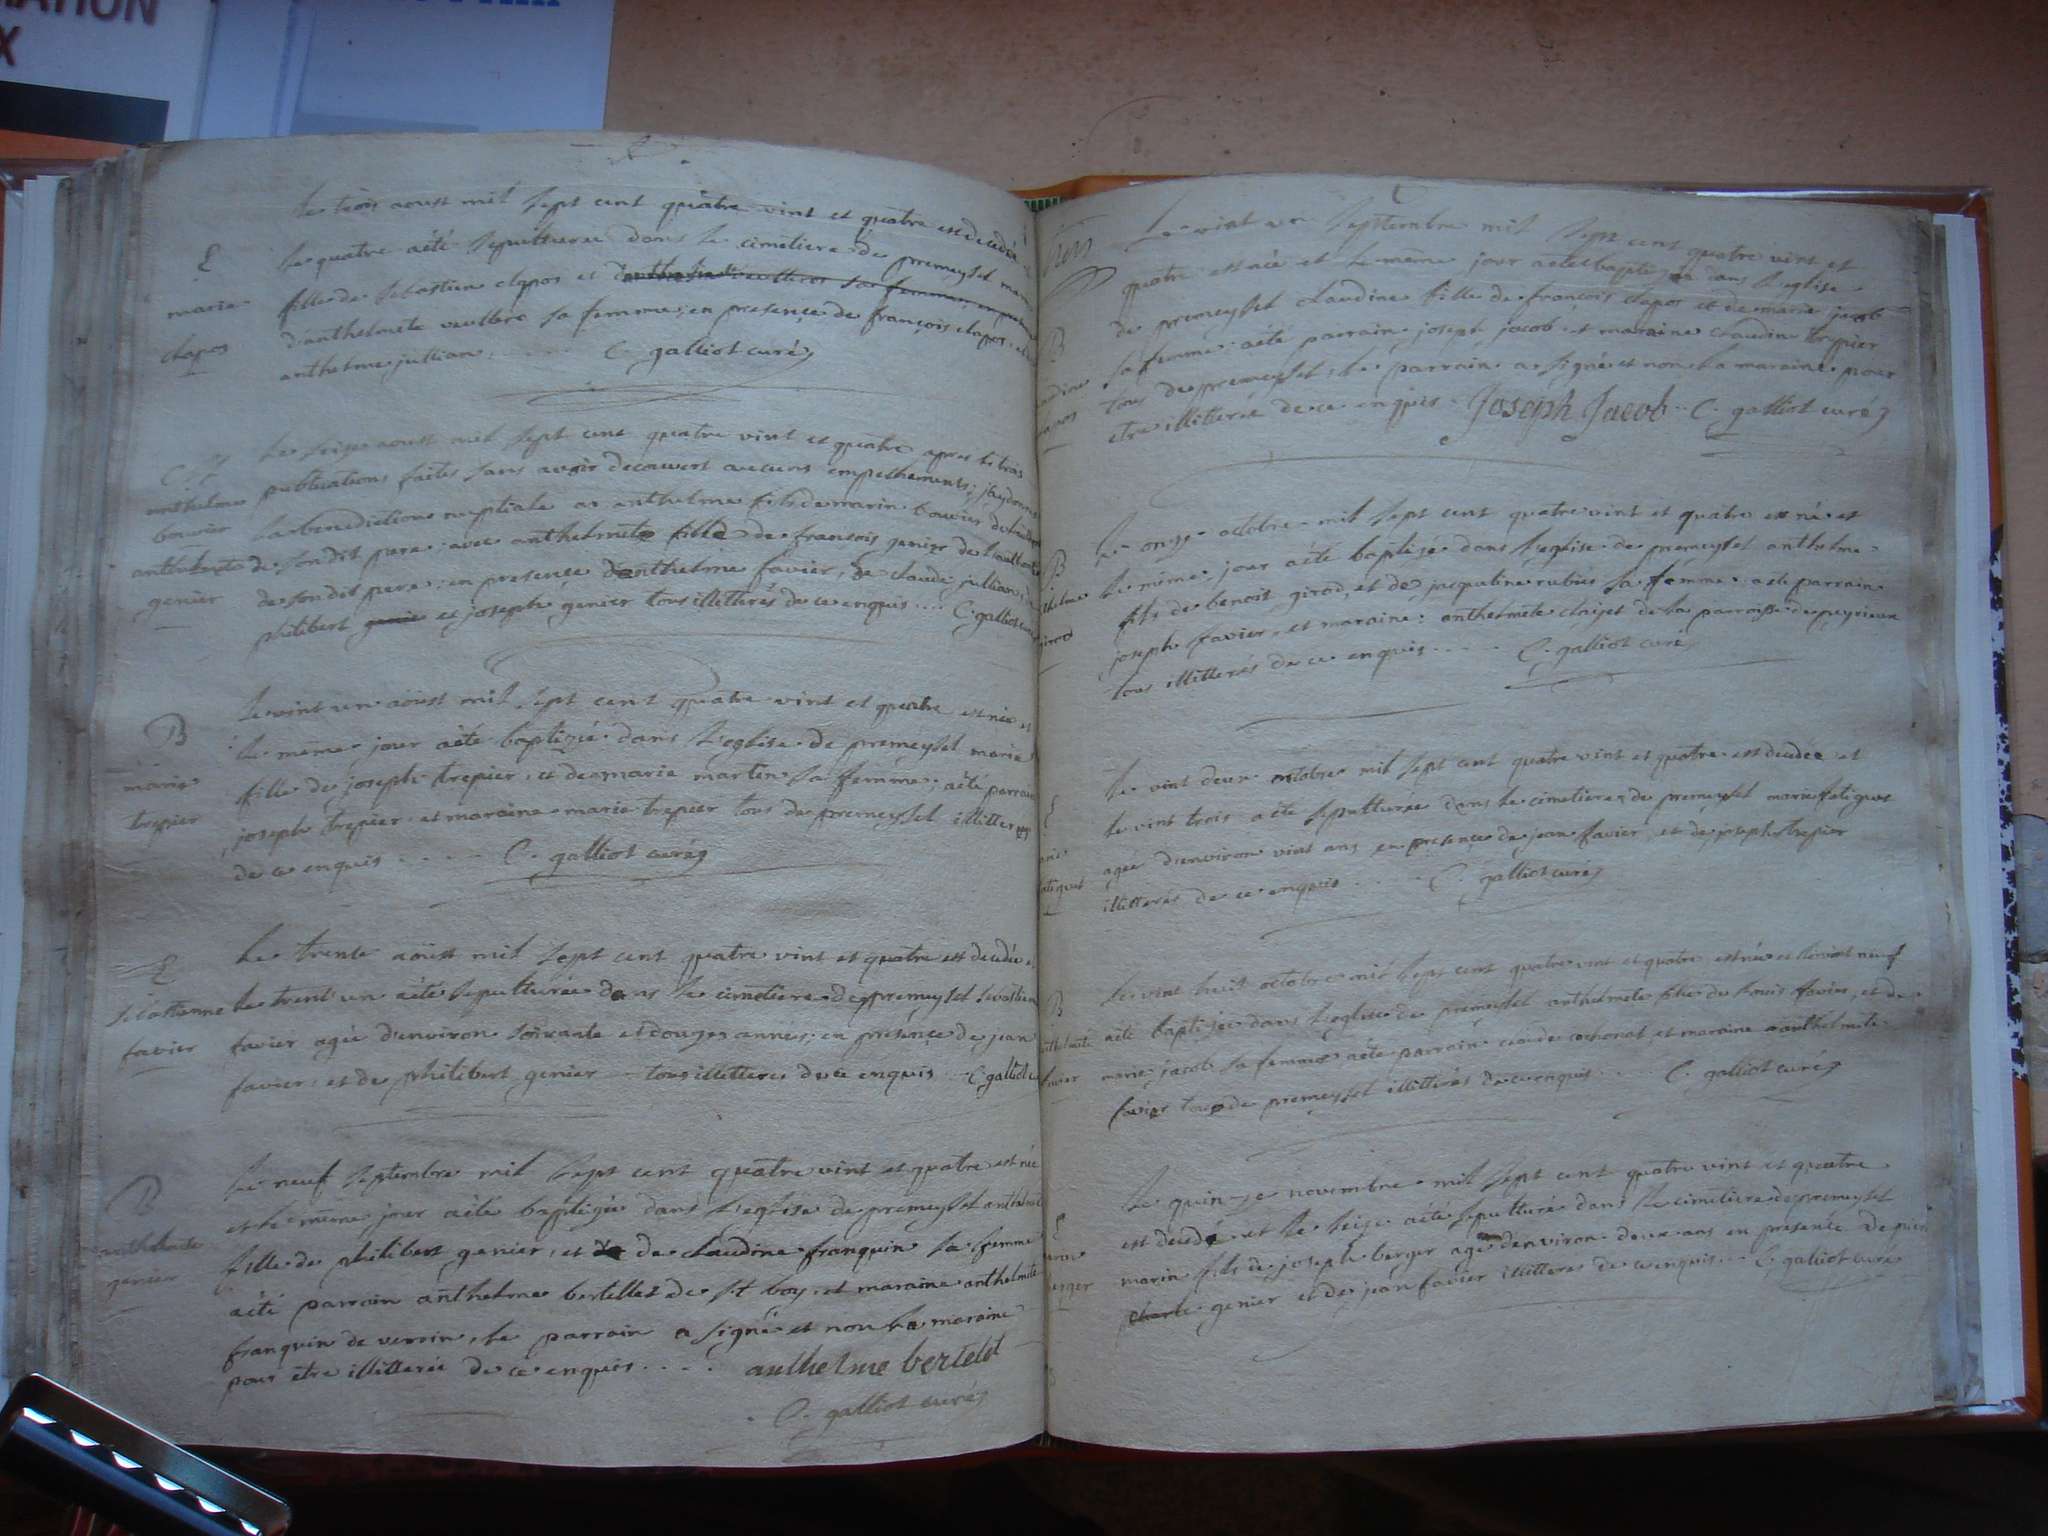 MATION
X
Le trois aoust mil sept cent quatre vint et quatre est decedée
E
le quatre a été sepulturée dans le cimetiere de premeysel marie
marie
fille de sebastien clapos et
clapos
d'anthelmete veullere sa femme, en presençe de françois clapos, et
anthelme jullian. C. galliot curé
Le seize aoust mil sept cent quatre vint et quatre apres les trois
anthelme
publications faites sans avoir decouvert aucuns empechements; j'ay donné
bouvier
la benediction nuptiale a anthelme fils de marin bouvier
anthelmete
de son dit pere, avec anthelmete fille de françois genier de
genier
de son dit pere: en presençe d'anthelme favier, de claude jullian, de
philibert et joseph genier tous illitterés de ce enquis .... C. galliot curé
Le vint un aoust mil sept cent quatre vint et quatre est née et
B
le même jour a été baptizée dans l'eglise de premeysel marie
marie
fille de joseph trepier, et de marie martin sa femme; a été parrain
trepier
joseph trepier et maraine marie trepier tous de premeysel illitterés
de ce enquis ..... C. galliot curé
Le trente aoust mil sept cent quatre vint et quatre est decedée et
E
sebastienne
le trent'un a été sepulturée dans le cimetiere de premeysel sebastienne
favier
favier agée d'environ soixante et douze années; en présençe de jean
favier et de philibert genier tous illitterés de ce enquis C. galliot
Le neuf septembre mil sept cent quatre vint et quatre est née
B
et le même jour a été baptizée dans l'eglise de premeysel anthelmete
anthelmete
genier
fille de philibert genier, et de claudine franquin sa femme
a été parrain anthelme bertellet de St boy, et maraine anthelmete
franquin de verrin, le parrain a signé et non la maraine
pour etre illitterée de ce enquis .... anthelme bertelet
C. galliot curé
Le vint un septembre mil sept cent quatre vint et
quatre est née et le même jour a été baptizée dans l'eglise
B
de premeysel claudine fille de françois clapos et de marie jacob
sa femme: a été parrain joseph jacob et maraine claudine trepier
claudine
tous de premeysel, le parrain a signé et non la maraine pour
clapos
etre illitterée de ce enquis. Joseph Jacob C. galliot curé
Le onze octobre mil sept cent quatre vint et quatre est né et
B
le même jour a été baptizé dans l'eglise de premeysel anthelme
anthelme
fils de benoit girod, et de jacqueline rubier sa femme: a été parrain
girod
joseph favier, et maraine: anthelmete claijet de la parroisse de peyrieux
tous illitterés de ce enquis .... C. galliot curé
Le vint deux octobre mil sept cent quatre vint et quatre est decedée et
E
le vint trois a été sepulturée dans le cimetiere de premeysel marie
marie
agée d'environ vint ans en presençe de jean favier et de joseph trepier
illitterés de ce enquis .... C. galliot curé
Le vint huit octobre mil sept cent quatre vint et quatre est née et le vint neuf
B
anthelmete
a été baptizée dans l'eglise de premeysel anthelmete fille de louis favier, et de
favier
marie jacob sa femme a été parrain claude cochonat et maraine anthelmete
favier tous de premeysel illitterés de ce enquis .... C. galliot curé
Le quinze novembre mil sept cent quatre vint et quatre
E
est decedé et le seize a été sepulturé dans le cimetiere de premeysel
marin
berger
marin fils de joseph berger agé d'environ deux ans en presençe de pierre
genier et de jean favier illitterés de ce enquis .... C. galliot curé